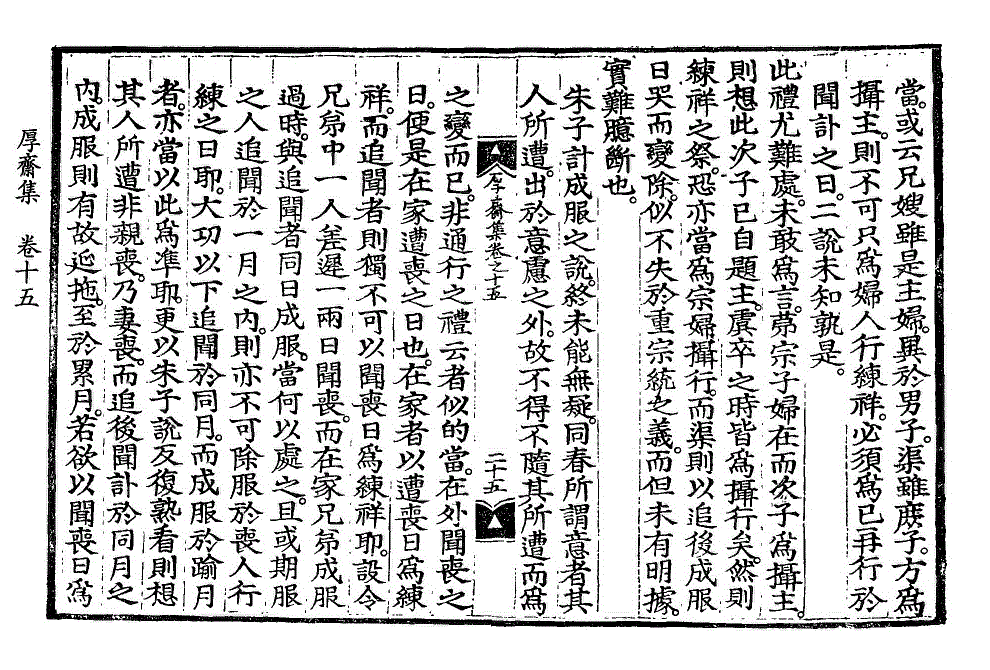 當。或云兄嫂雖是主婦。異於男子。渠雖庶子。方爲
攝主。則不可只爲婦人行練祥。必須爲已再行於
聞訃之日。二說未知孰是。
此禮尤難處。未敢爲言。苐宗子婦在而次子爲攝主。
則想此次子已自題主。虞卒之時皆爲攝行矣。然則
練祥之祭。恐亦當爲宗婦攝行。而渠則以追後成服
日哭而變除。似不失於重宗統之義。而但未有明據。
實難臆斷也。
朱子計成服之說。終未能無疑。同春所謂意者其
人所遭。出於意慮之外。故不得不隨其所遭而爲
厚齋集卷之十五
二十五
之變而已。非通行之禮云者似的當。在外聞喪之
日。便是在家遭喪之日也。在家者以遭喪日爲練
祥。而追聞者則獨不可以聞喪日爲練祥耶。設令
兄弟中一人差遲一兩日聞喪。而在家兄弟成服
過時。與追聞者同日成服。當何以處之。且或期服
之人追聞於一月之內。則亦不可除服於喪人行
練之日耶。大功以下追聞於同月。而成服於踰月
者。亦當以此爲準耶。更以朱子說反復熟看。則想
其人所遭非親喪。乃妻喪。而追後聞訃於同月之
內。成服則有故迆拖。至於累月。若欲以聞喪日爲
厚齋集
卷十五